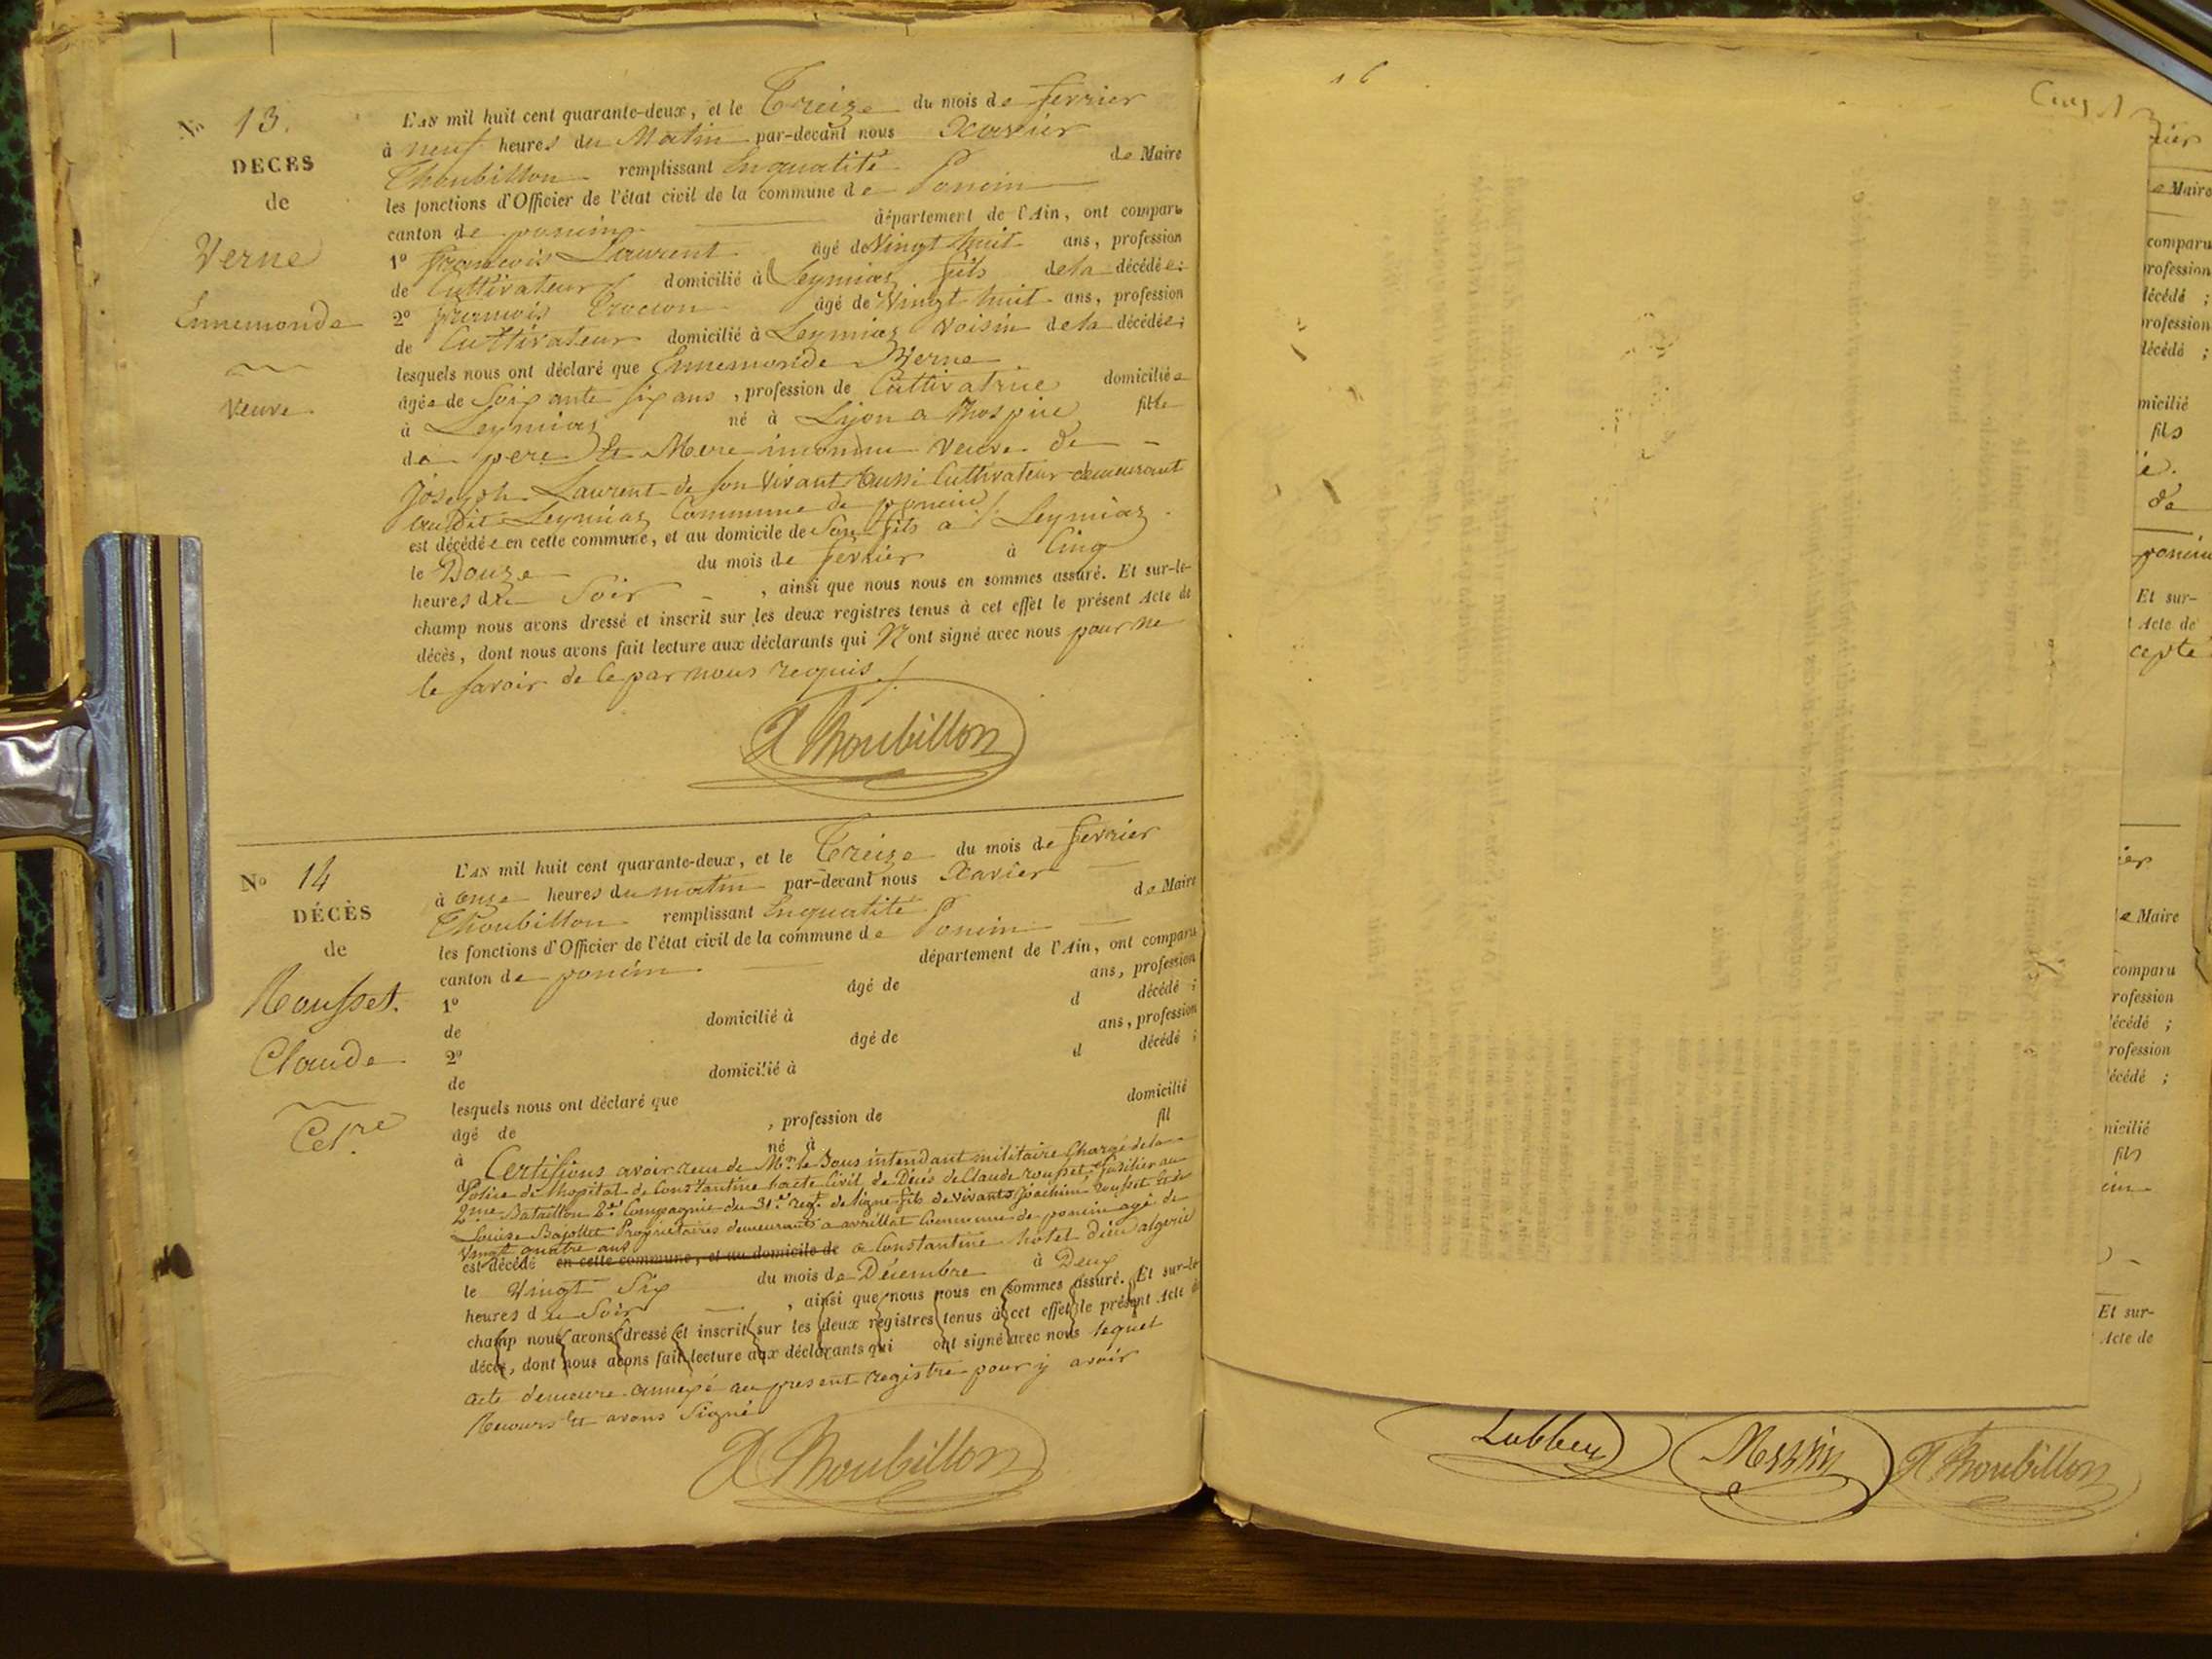 N° 13.
DECES
de
Verne
Ennemonde
veuve
L'AN mil huit cent quarante-deux, et le Treize du mois de fevrier
à neuf heures du Matin par-devant nous Xavier
Thoubillon remplissant Enqualité de Maire
les fonctions d'Officier de l'état civil de la commune de Poncin
canton de poncin département de l'Ain, ont comparu
1° françois Laurent âgé de Vingt huit ans, profession
de Cultivateur domicilié à Leymiaz fils de la décédée;
2° françois Crocion âgé de Vingt huit ans, profession
de Cultivateur domicilié à Leymiaz Voisin de la décédée;
lesquels nous ont déclaré que Ennemonde Verne
âgée de Soixante six ans, profession de Cultivatrice domiciliée
à Leymiaz né à Lyon a l'hospice fille
de pere et Mere inconnu veuve de
Joseph Laurent de son vivant aussi Cultivateur demeurant
audit Leymiaz Commune de poncin
est décédée en cette commune, et au domicile de Son fils a Leymiaz.
le Douze du mois de fevrier à Cinq
heures du Soir, ainsi que nous nous en sommes assuré. Et sur-le-
champ nous avons dressé et inscrit sur les deux registres tenus à cet effet le présent Acte de
décès, dont nous avons fait lecture aux déclarants qui N'ont signé avec nous pour ne
le savoir de ce par nous requis.
X Thoubillon
N° 14
DÉCÈS
de
Rousset.
Claude
Cel.re
L'AN mil huit cent quarante-deux, et le Treize du mois de fevrier
à onze heures du matin par-devant nous Xavier
Thoubillon remplissant Enqualité de Maire
les fonctions d'Officier de l'état civil de la commune de Poncin
canton de poncin. département de l'Ain, ont comparu
1° âgé de ans, profession
de domicilié à d décédé;
2° âgé de ans, profession
de domicilié à d décédé;
lesquels nous ont déclaré que
âgé de, profession de domicilié
à né à fil
d Certifions avoir recu de Mr. le Sous intendant militaire Chargé de la
Police de l'hopital de Constantine l'acte Civil de Décès de Claude rousset fusilier au
2me Bataillon 2e Compagnie du 31e regt. de ligne fils de vivants Joachim rousset et de
Louise Bajollet Propriétaires demeurants a avrillat Commune de poncin agé de
Vingt quatre ans
est décédé en cette commune, et au domicile de a Constantine hotel dieu algerie
le Vingt Six du mois de Décembre à Deux
heures du Soir, ainsi que nous nous en sommes assuré. Et sur-le-
champ nous avons dressé et inscrit sur les deux registres tenus à cet effet le présent Acte de
décès, dont nous avons fait lecture aux déclarants qui ont signé avec nous lequel
acte demeure annexé au present registre pour y avoir
Recours et avons Signé
X Thoubillon
16
rier
e Maire
comparu
rofession
décédé ;
profession
décédé ;
micilié
fils
de
poncin
Et sur-
Acte de
cepte
ier
e Maire
comparu
rofession
écédé ;
rofession
écédé ;
nicilié
fils
Et sur-
Acte de
Messin
X Thoubillon